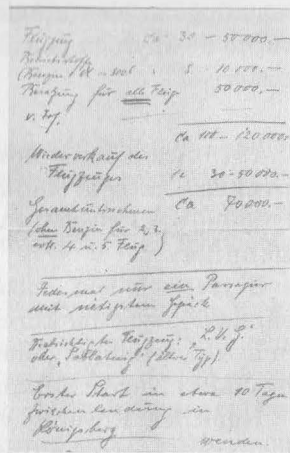 Flugzeug ca 30 – 50 000.—
Betriebsstoffe
(Benzin, Öl – 5 10 000.—
Besatzung für alle Flüge 50 000.—
ca 110 – 120 000.
Wiederverkauf des
Flugzeuges 30–50 000.—
Gesamtunternehmen ca 70 000.—
(ohne Benzin für 2, 3
evtl. 4 u. 5 Flug.)
Jedesmal nur ein Passagier
mit nötigstem Gepäck
Flugzeug: "L.V.G."
oder "Sablatnig" (älterer Typ)
Erster Start in etwa 10 Tagen
Zwischenlandung in
Königsberg
wenden.